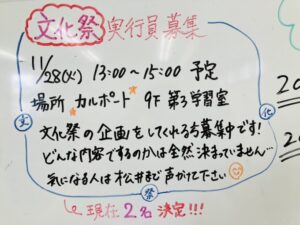 文化祭 実行員募集
11/28(火) 13:00~15:00 予定
場所 カルポート 9F 第3学習室
文化祭の企画をしてくれる方募集中です!
どんな内容でするのかは全然決まっていません…
気になる人は松井まで声がけて下さい
文 化 祭
現在 2名 決定!!!
20
20